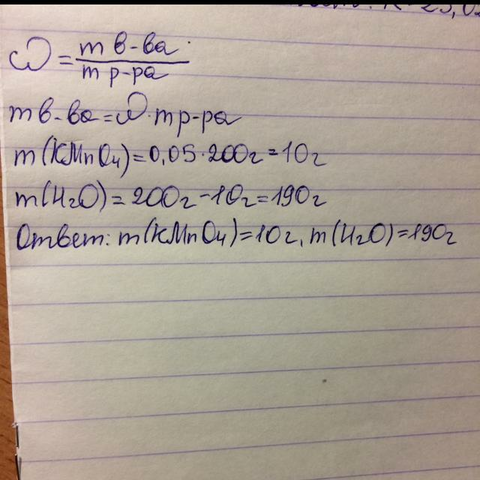 ω = m в-ва / m р-ра
m в-ва = ω · m р-ра
m(KMnO₄) = 0,05 · 200г = 10г
m(H₂O) = 200г - 10г = 190г
Ответ: m(KMnO₄) = 10г, m(H₂O) = 190г